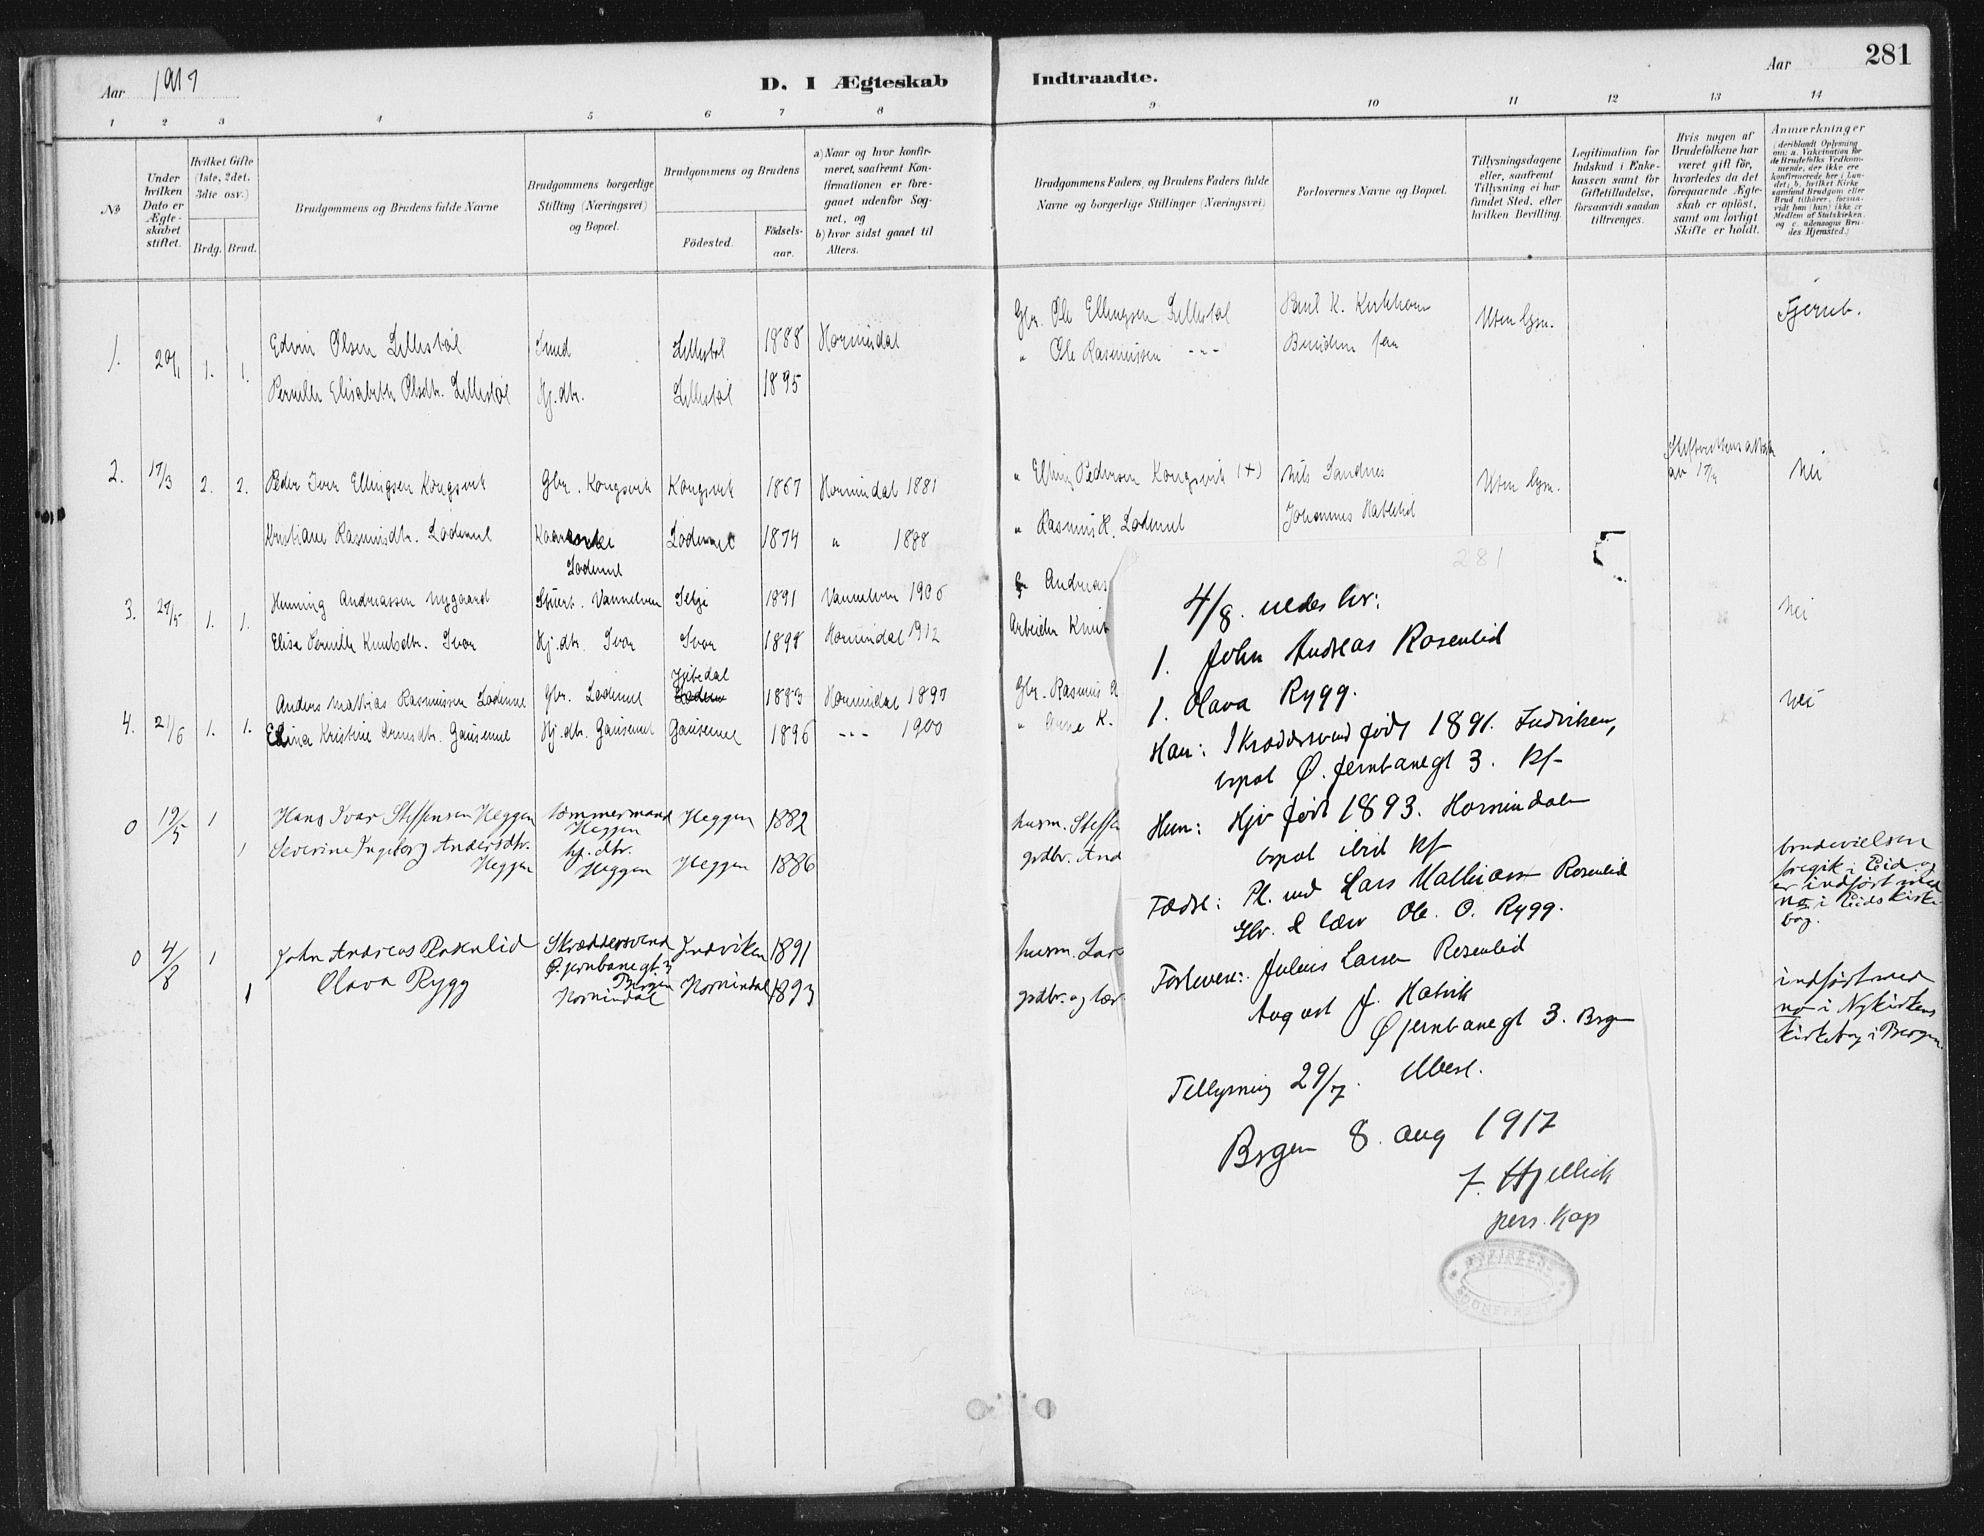 Aar 1917
D. I Ægteskab Indtraadte.
Aar 281
1 2 3 4 5 6 7 8 9 10 11 12 13 14
No
Under hvilken Dato er Ægteskabet stiftet.
Hvilket Gifte (1ste, 2det. 3dte osv.)
Brdg. Brud.
Brudgommens og Brudens fulde Navne
Brudgommens borgerlige Stilling (Næringsvei) og Bopæl.
Brudgommens og Brudens
Födested. Födsels-aar.
a) Naar og hvor konfirmeret, saafremt Konfirmationen er foregaaet udenfor Sognet, og
b) hvor sidst gaaet til Alters.
Brudgommens Faders og Brudens Faders fulde Navne og borgerlige Stillinger (Næringsvei)
Forlovernes Navne og Bopæl.
Tillysningsdagene eller, saafremt Tillysning ei har fundet Sted, efter hvilken Bevilling.
Legitimation for Indskud i Enkekassen samt for Giftetilladelse, forsaavidt saadan tiltrænges.
Hvis nogen af Brudefolkene har været gift för, hvorledes da det foregaaende Ægteskab er oplöst, samt om lovligt Skifte er holdt.
Anmærkninger (deriblandt Oplysning om: a. Vakcination for de Brudefolks Vedkommende, der ikke ere konfirmerede her i Landet; b. hvilket Kirkesamfund Brudgom eller Brud tilhörer, forsaavidt han (hun) ikke er Medlem af Statskirken. og c. udensogns Brudes Hjemsted.)
1. 20/1 1. 1. Edvin Olsen Lillestøl Smed Lillestøl 1888 Hornindal Gbr. Ole Ellingsen Lillestøl Paul K. Kirkhorn Uten lysn. Fjernb.
Pernille Elisabeth Olsdtr. Lillestøl Hj.dtr. Lillestøl 1895 " Ole Rasmussen -"-
2. 17/3 2. 2. Peder Iver Ellingsen Kongsvik Gbr. Kongsvik Kongsvik 1867 Hornindal 1881 " Elling Pedersen Kongsvik (+) Nils Sandnes Uten lysn. Nei
Kristiane Rasmusdtr. Lødemel Lødemel Lødemel 1874 " 1888 " Rasmus H. Lødemel Johannes
3. 27/5 1. 1. Henning Andreassen Nygaard Vannelven Selje 1891 Vannelven 1906 Andreas Nei
Elise Pernille Knutsdtr. Ivar Hj.dtr. 1898 Hornindal 1912 Arbeider Knut
4. 21/6 1. 1. Anders Mathias Rasmussen Lødemel Gbr. Lødemel 1883 Hornindal 1897 Gbr. Rasmus Nei
Elina Kristine Arnesdtr. Gausemel Hj.dtr. Gausemel Gausemel 1896 -"- 1900 " Arne K.
0 19/5 1 Hans Ivar Steffensen Heggen tømmermand Heggen Heggen 1882 husm. Steffe
1 Severine Ingeborg Andersdtr. Heggen hj.dtr. Heggen Heggen 1886 grdbr. And
brudevielsen foregik i Eid og er indført med no i Eids kirkebog.
0 4/8 1 John Andreas Rosenlid Skræddersvend Ø. jernbanegt. 3 Bergen Indviken 1891 husm. Lars
1 Olava Rygg Hornindal Hornindal 1893 grdbr. og lær.
indført med no i Nykirkens kirkebog i Bergen.
281
4/8. viedes her:
1. John Andreas Rosenlid
1. Olava Rygg.
Han: Skræddersvend født 1891. Indviken,
bopæl Ø. Jernbanegt 3. kf
Hun: Hjv født 1893. Hornindalen
bopæl ibid kf
Fædre: Pl. md Lars Mathiasn Rosenlid
Gbr. & lær Ole O. Rygg.
Forlovere: Julius Larsen Rosenlid
August J. Hatvik
Ø jernbanegt 3. Brgn
Tillysning 29/7.
Brgen 8. aug 1917
F. Hjellvik
pers. Kap
NYKIRKENS SOGNEPREST